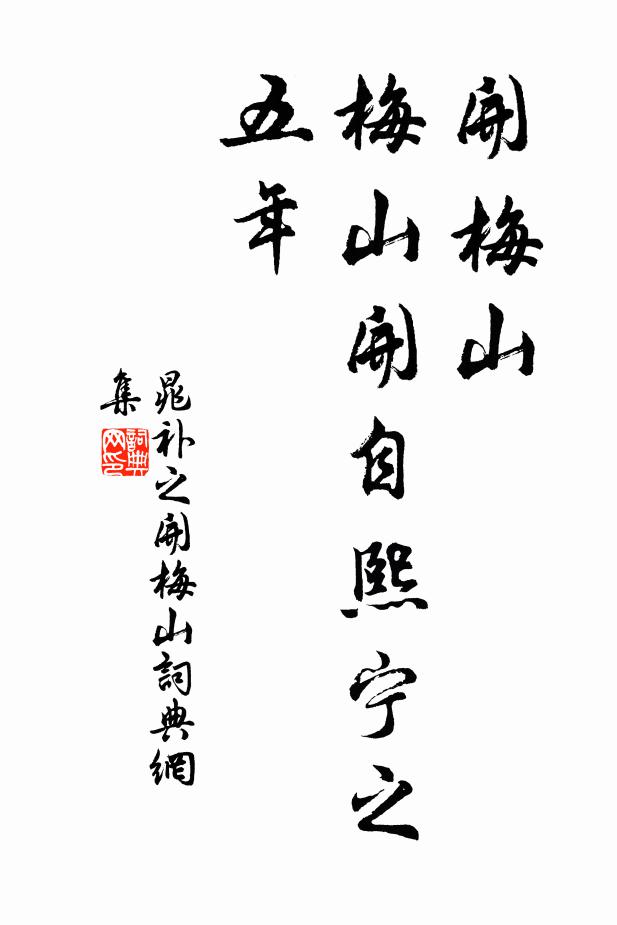 開梅山
梅山開自熙宁之
五年
晁补之開梅山詞典網
集
詞典
网印